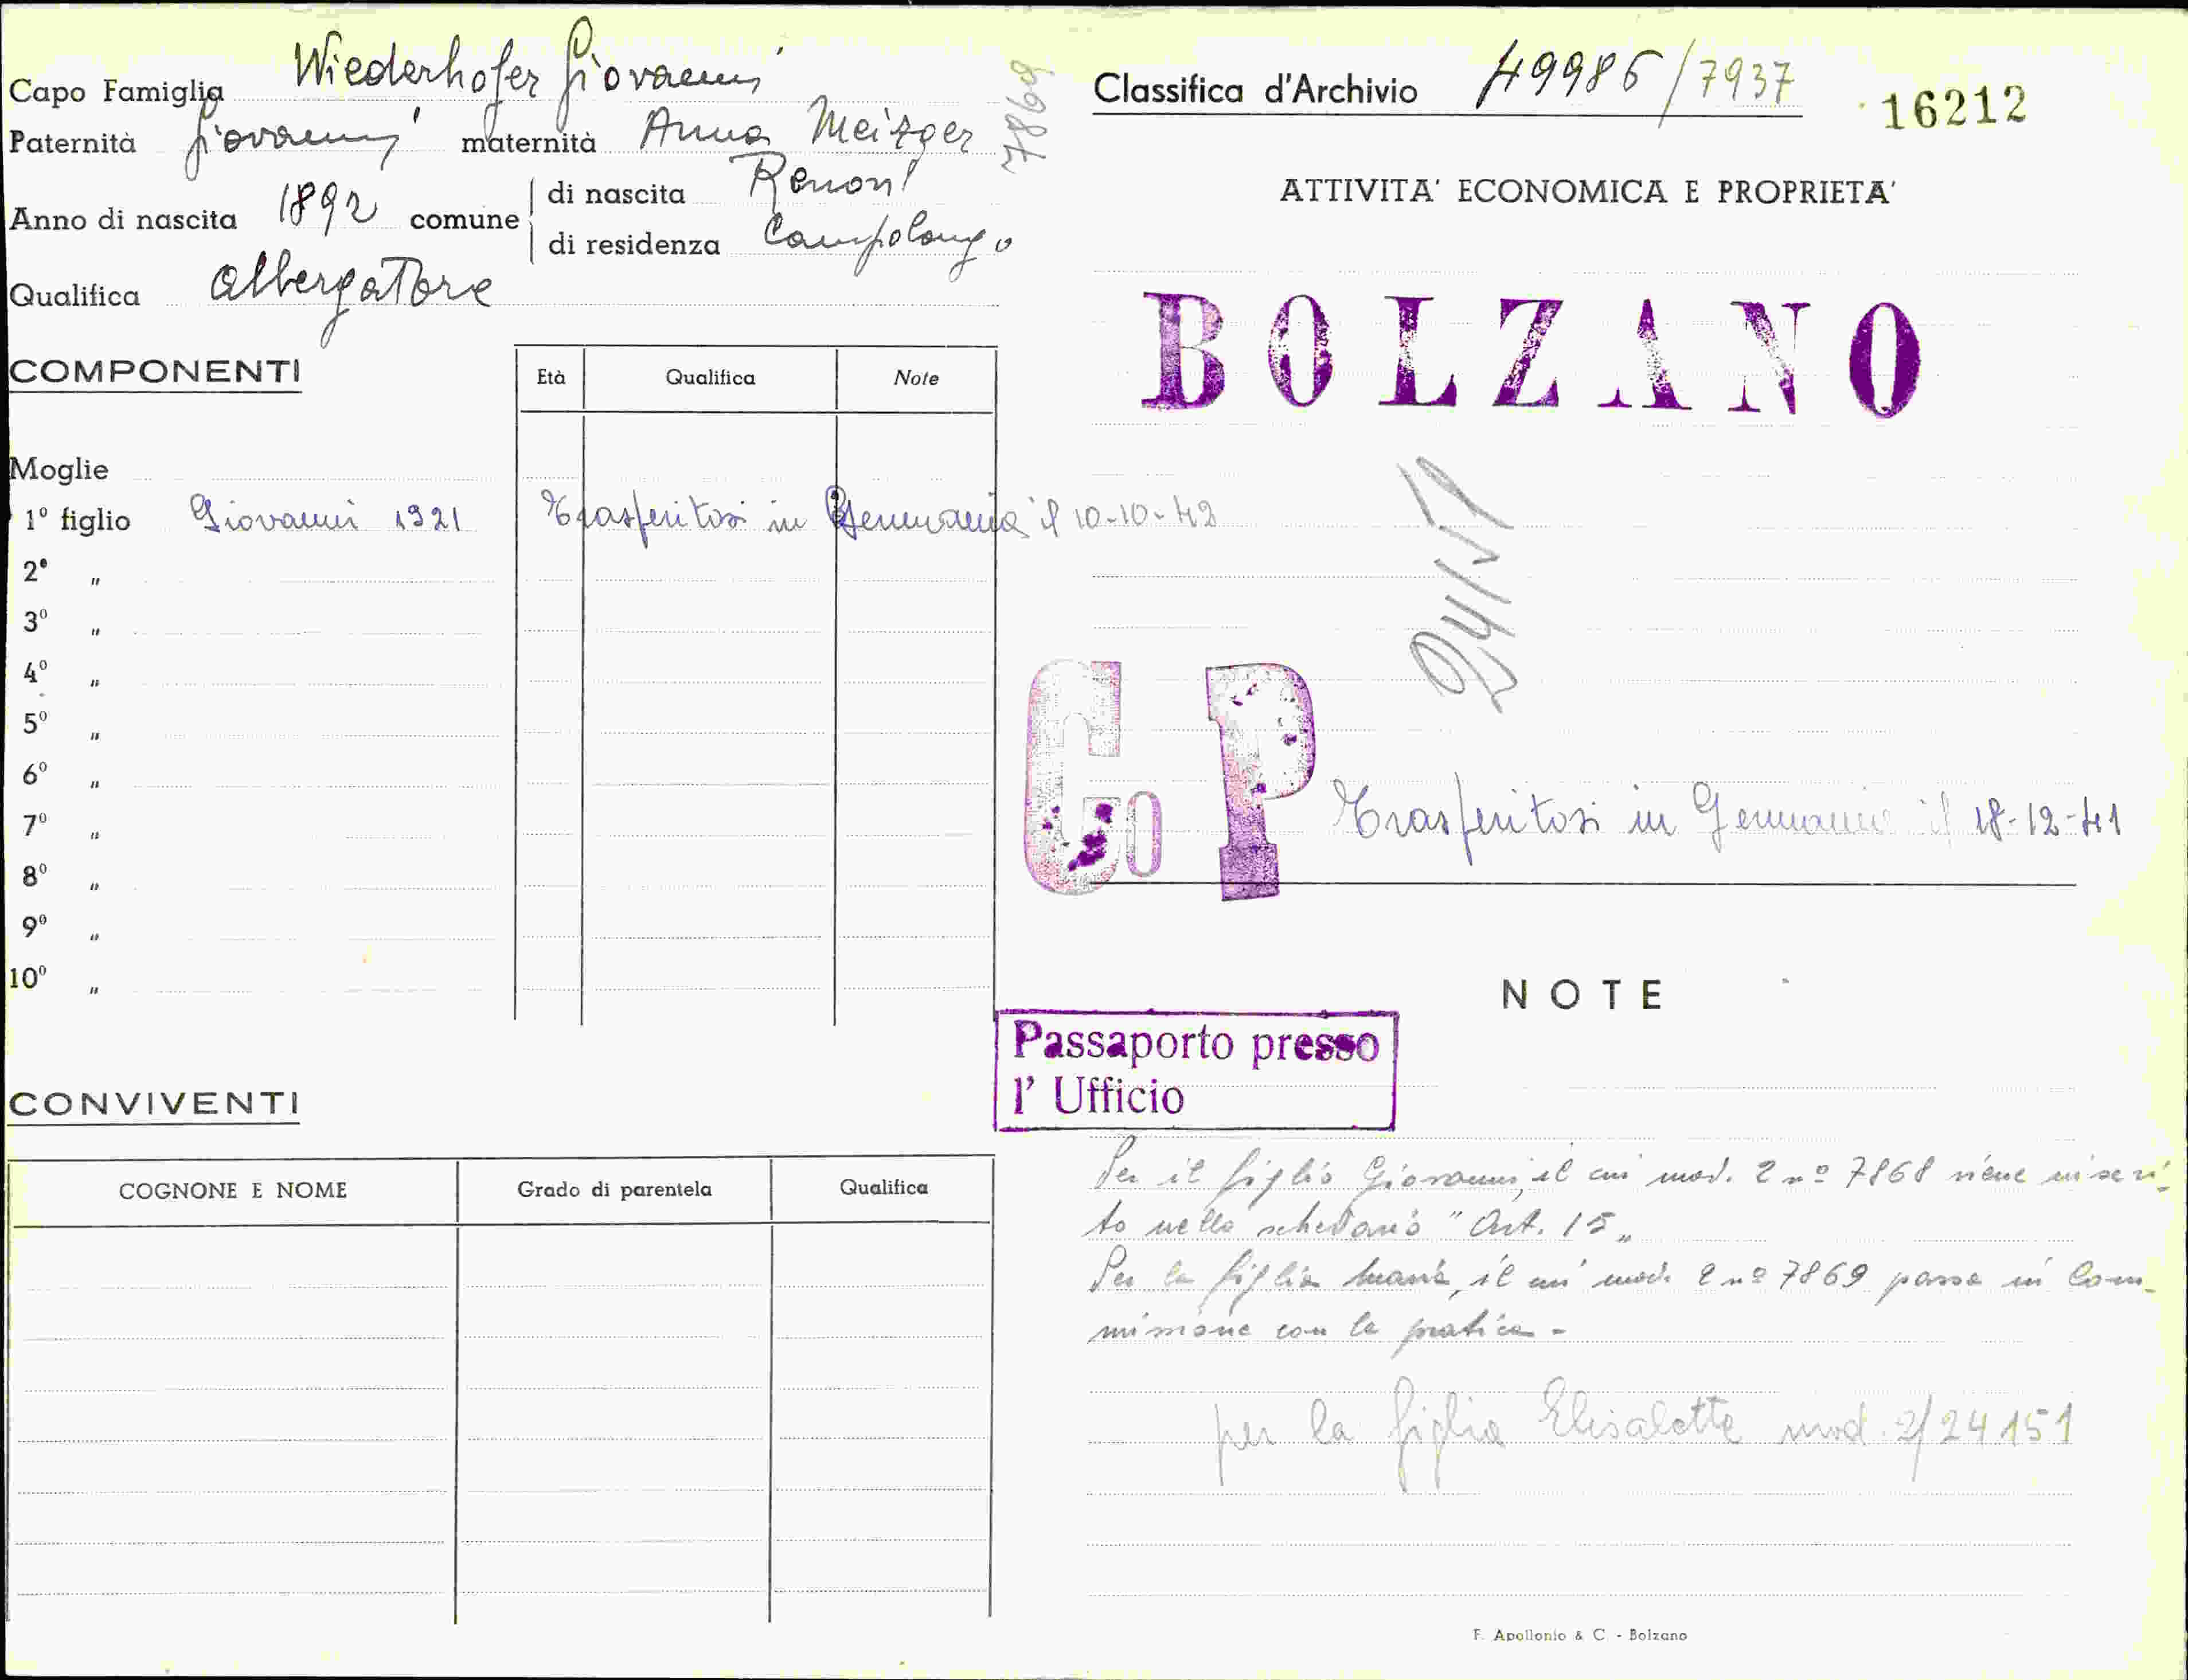 Capo Famiglia Wiederhofer Giovanni
Paternità Giovanni maternità Anna Meizger
Anno di nascita 1892 comune di nascita Renon
di residenza Campolongo
Qualifica albergatore
7869
COMPONENTI
Età Qualifica Note
Moglie
1º figlio Giovanni 1921 Trasferitosi in Germania il 10-10-42
2º "
3º "
4º "
5º "
6º "
7º "
8º "
9º "
10º "
CONVIVENTI
COGNONE E NOME Grado di parentela Qualifica
Classifica d'Archivio 49986/7937 16212
ATTIVITA' ECONOMICA E PROPRIETA'
BOLZANO
24151
Co P
Trasferitosi in Germania il 18-12-41
NOTE
Passaporto presso
l' Ufficio
Per il figlio Giovanni, il cui mod. 2 nº 7868 viene inseri-
to nello schedario "Art. 15"
Per la figlia Maria, il cui mod. 2 nº 7869 passa in Com-
missione con la pratica -
per la figlia Elisabetta mod. 2/24151
F. Apollonio & C. - Bolzano